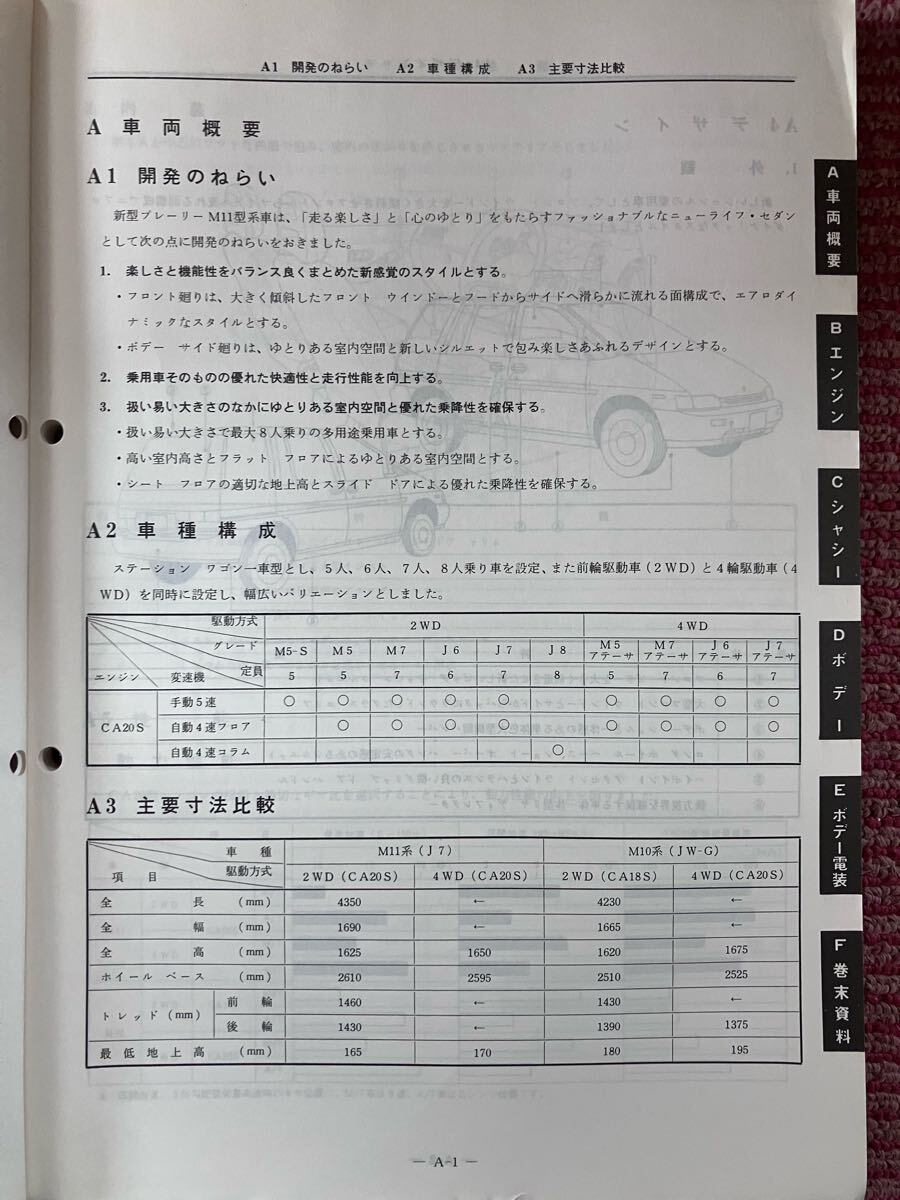 A1 開発のねらい　A2 車種構成　A3 主要寸法比較
A 車両概要
A1 開発のねらい
新型プレーリーM11型系車は、「走る楽しさ」と「心のゆとり」をもたらすファッショナブルなニューライフ・セダン
として次の点に開発のねらいをおきました。
1. 楽しさと機能性をバランス良くまとめた新感覚のスタイルとする。
・フロント廻りは、大きく傾斜したフロント　ウインドーとフードからサイドへ滑らかに流れる面構成で、エアロダイ
ナミックなスタイルとする。
・ボデー　サイド廻りは、ゆとりある室内空間と新しいシルエットで包み楽しさあふれるデザインとする。
2. 乗用車そのものの優れた快適性と走行性能を向上する。
3. 扱い易い大きさのなかにゆとりある室内空間と優れた乗降性を確保する。
・扱い易い大きさで最大8人乗りの多用途乗用車とする。
・高い室内高さとフラット　フロアによるゆとりある室内空間とする。
・シート　フロアの適切な地上高とスライド　ドアによる優れた乗降性を確保する。
A2 車種構成
ステーション　ワゴン一車型とし、5人、6人、7人、8人乗り車を設定、また前輪駆動車（2WD）と4輪駆動車（4
WD）を同時に設定し、幅広いバリエーションとしました。
駆動方式 2WD 4WD
グレード M5-S M5 M7 J6 J7 J8 M5アテーサ M7アテーサ J6アテーサ J7アテーサ
エンジン 変速機 定員 5 5 7 6 7 8 5 7 6 7
手動5速 ○ ○ ○ ○ ○ ○ ○ ○ ○
CA20S 自動4速フロア ○ ○ ○ ○ ○ ○ ○ ○
自動4速コラム ○
A3 主要寸法比較
車種 M11系（J7） M10系（JW-G）
項目 駆動方式 2WD（CA20S） 4WD（CA20S） 2WD（CA18S） 4WD（CA20S）
全長 (mm) 4350 ← 4230 ←
全幅 (mm) 1690 ← 1665 ←
全高 (mm) 1625 1650 1620 1675
ホイール ベース (mm) 2610 2595 2510 2525
トレッド(mm) 前輪 1460 ← 1430 ←
後輪 1430 ← 1390 1375
最低地上高 (mm) 165 170 180 195
— A-1 —
A 車両概要
B エンジン
C シャシー
D ボデー
E ボデー電装
F 巻末資料